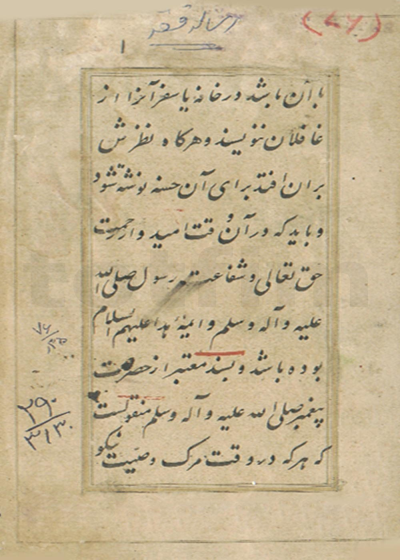 رساله فقه
(۲۶)
۱
با آن باشد در خانه یا سفر آنرا از
غافلان ننویسند و هرگاه نظرش
بران افتد برای آن حسنه نوشته شود
و باید که در آن وقت امید وار رحمت
حق تعالی و شفاعت رسول صلی الله
علیه و آله وسلم و ایمهٔ هدا علیهم السلام
بوده باشد و بسند معتبر از حضرت
پیغمبر صلی الله علیه و آله وسلم منقولست
که هرکه در وقت مرک وصیت نیکو
۲۹۰
۳۱۳۰